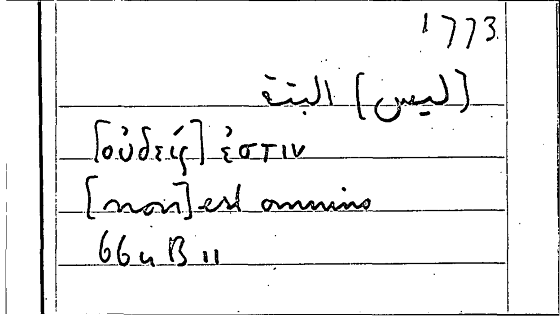 1773
[ليس] البتة
[οὐδείς] ἐστιν
[non] est omnino
66a B 11